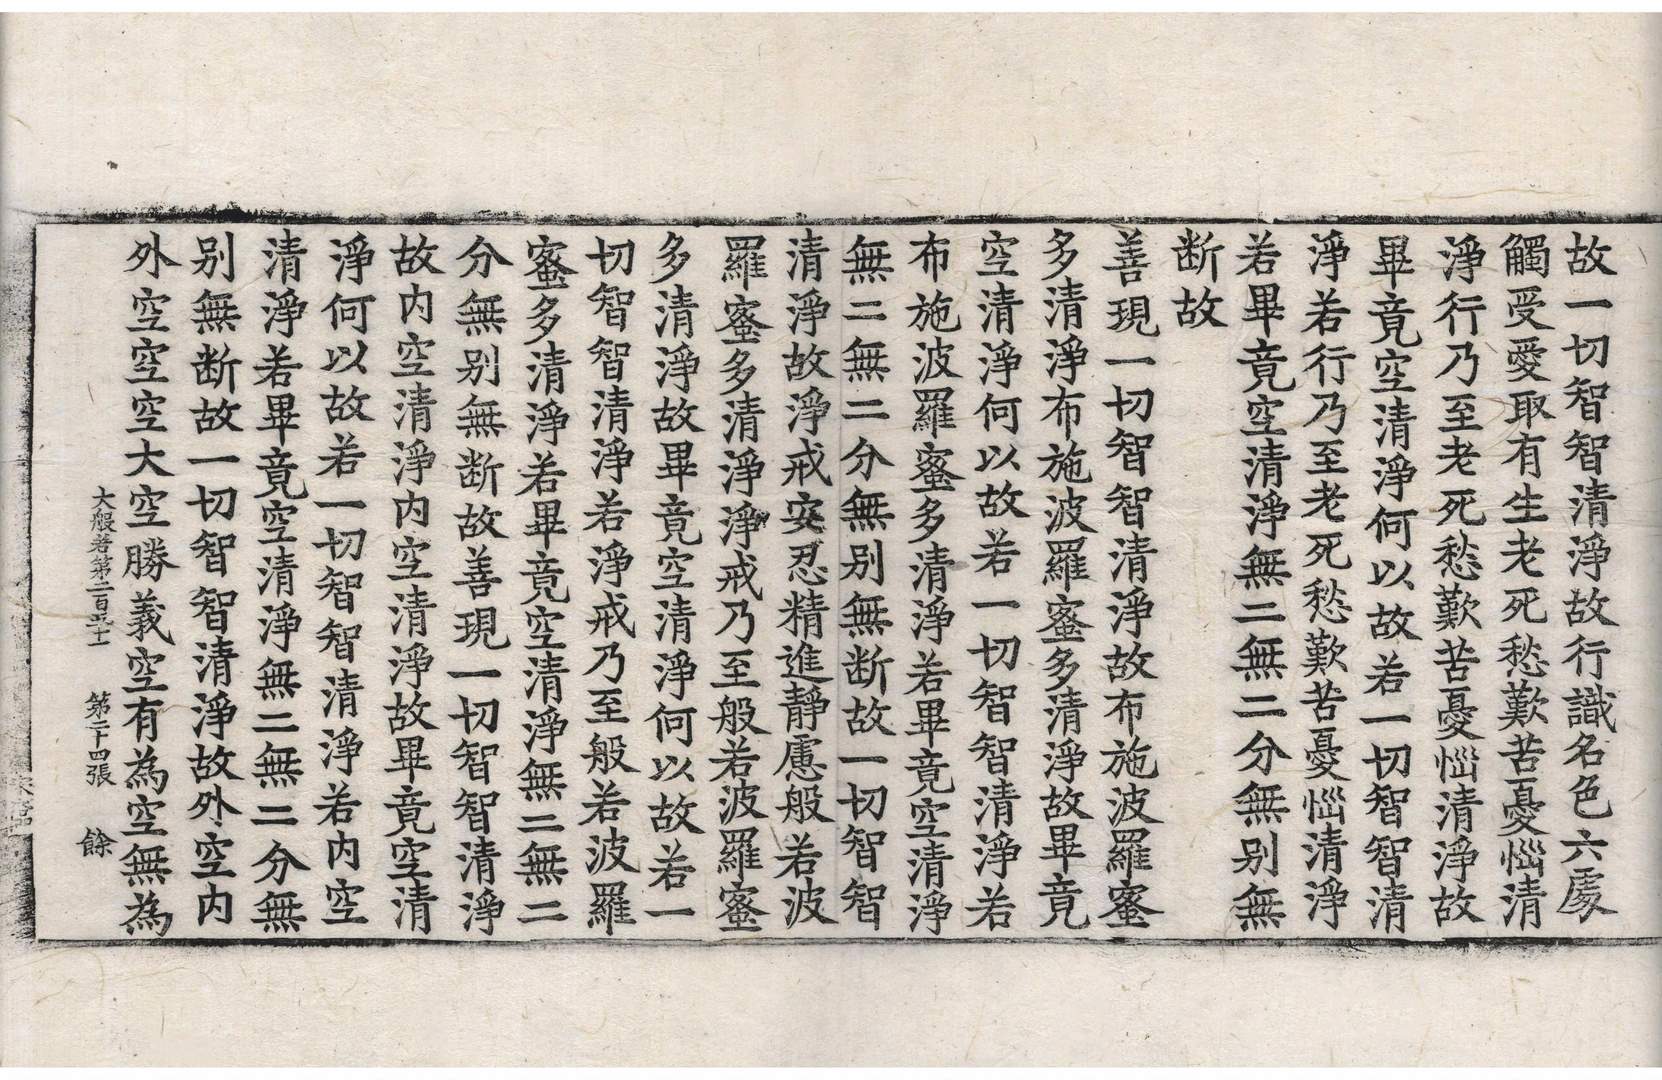 故一切智智清淨故行識名色六處
觸受愛取有生老死愁歎苦憂惱清
淨行乃至老死愁歎苦憂惱清淨故
畢竟空清淨何以故若一切智智清
淨若行乃至老死愁歎苦憂惱清淨
若畢竟空清淨無二無二分無别無
断故
善現一切智智清淨故布施波羅蜜
多清淨布施波羅蜜多清淨故畢竟
空清淨何以故若一切智智清淨若
布施波羅蜜多清淨若畢竟空清淨
無二無二分無别無断故一切智智
清淨故淨戒安忍精進靜慮般若波
羅蜜多清淨淨戒乃至般若波羅蜜
多清淨故畢竟空清淨何以故若一
切智智清淨若淨戒乃至般若波羅
蜜多清淨若畢竟空清淨無二無二
分無别無断故善現一切智智清淨
故内空清淨内空清淨故畢竟空清
淨何以故若一切智智清淨若内空
清淨若畢竟空清淨無二無二分無
别無断故一切智智清淨故外空内
外空空空大空勝義空有為空無為
大般若第二百五十 第二十四張 餘